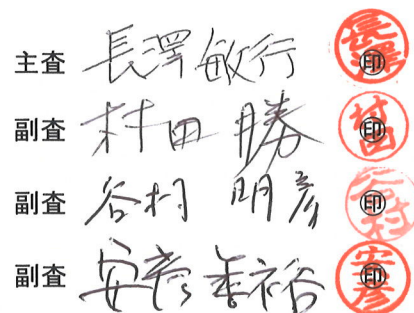 主査 長澤敏行 ㊞ 長澤
副査 村田 勝 ㊞ 村田
副査 谷村 明彦 ㊞ 谷村
副査 安彦善裕 ㊞ 安彦